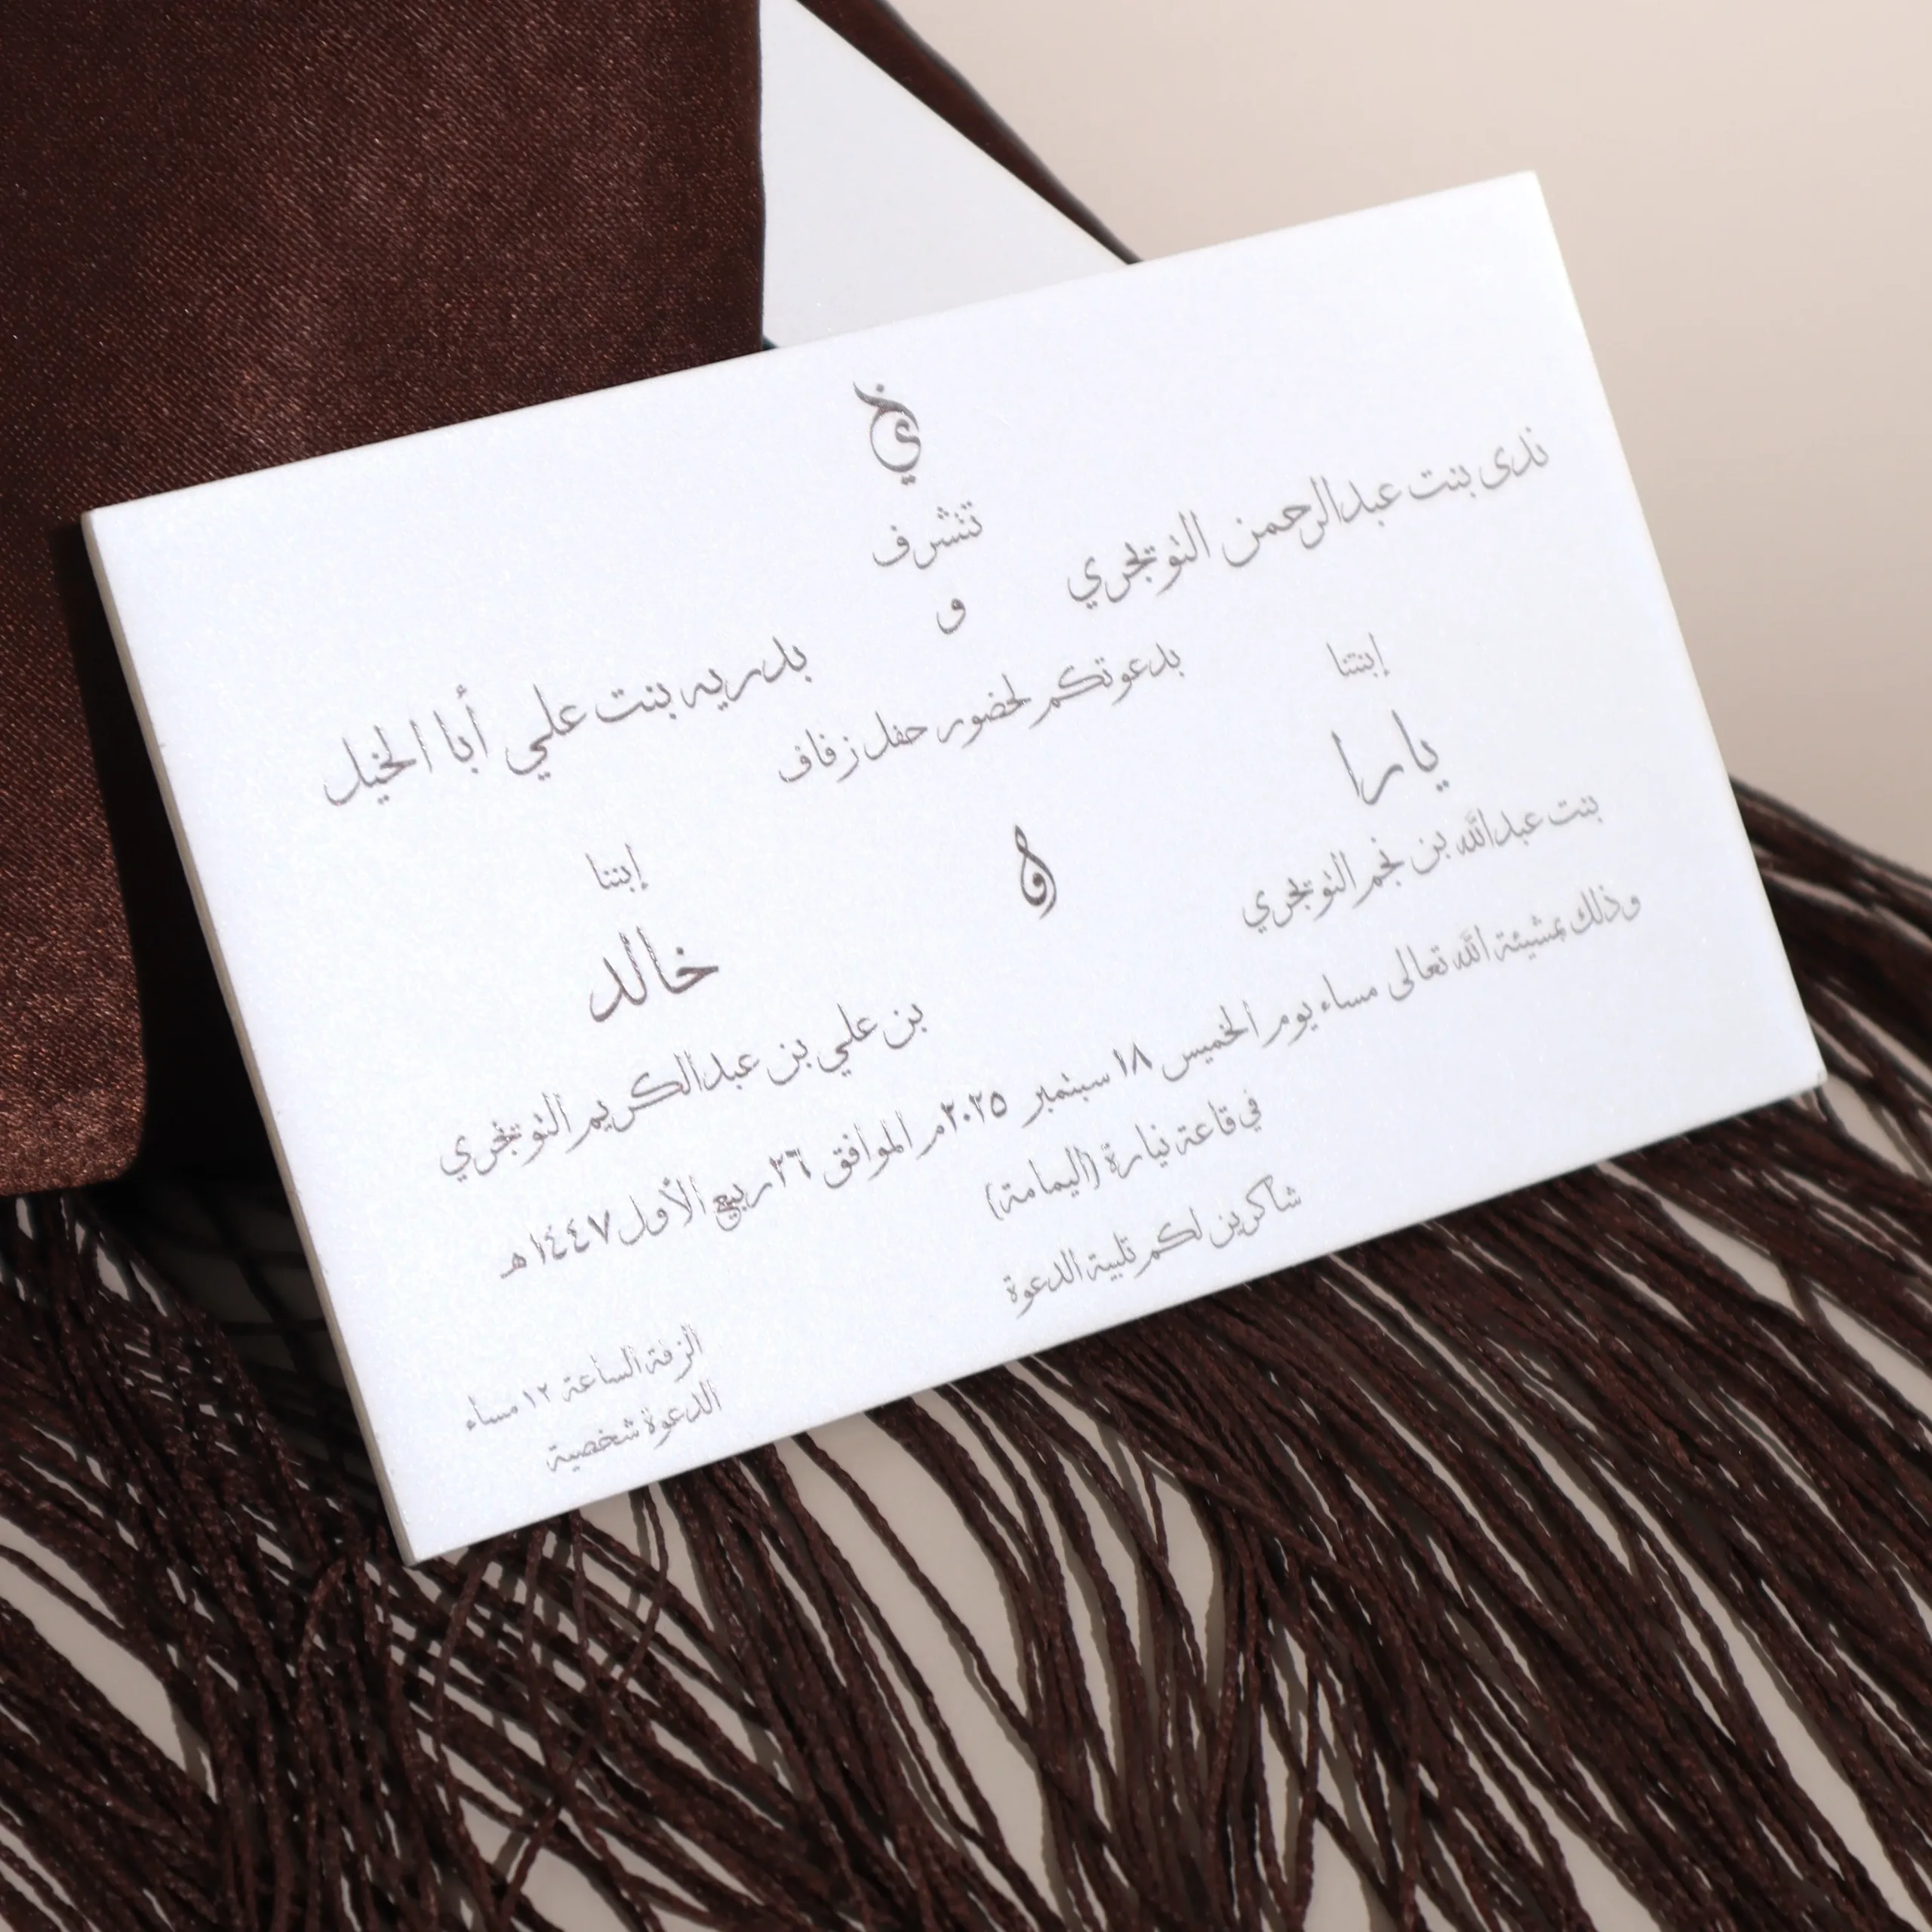 تتشرف
ندى بنت عبدالرحمن التويجري
و
بدريه بنت علي أبا الخيل
بدعوتكم لحضور حفل زفاف
إبنتنا
يارا
بنت عبدالله بن نجم التويجري
و
إبننا
خالد
بن علي بن عبدالكريم التويجري
وذلك بمشيئة الله تعالى مساء يوم الخميس ١٨ سبتمبر ٢٠٢٥م الموافق ٢٦ ربيع الأول ١٤٤٧هـ
في قاعة نيارة (اليمامة)
شاكرين لكم تلبية الدعوة
الزفة الساعة ١٢ مساء
الدعوة شخصية